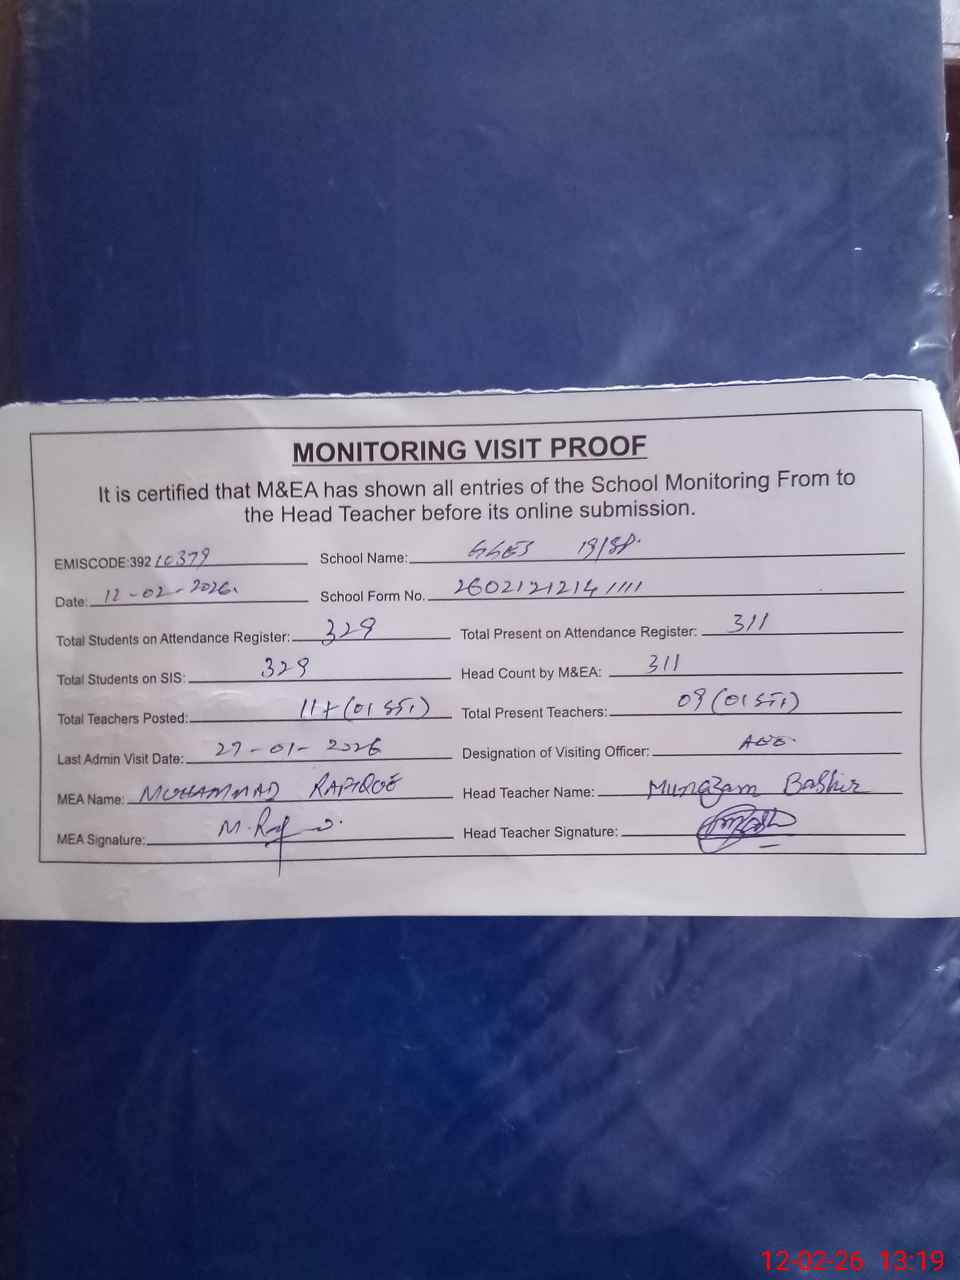 MONITORING VISIT PROOF
It is certified that M&EA has shown all entries of the School Monitoring From to
the Head Teacher before its online submission.
EMISCODE:392 10379 School Name: GGES 19/SP.
Date: 12-02-2026. School Form No. 2602121214 1111
Total Students on Attendance Register: 329 Total Present on Attendance Register: 311
Total Students on SIS: 329 Head Count by M&EA: 311
Total Teachers Posted: 11+(01 STI) Total Present Teachers: 09 (01 STI)
Last Admin Visit Date: 27-01-2026 Designation of Visiting Officer: AEO.
MEA Name: MUHAMMAD RAFIQUE Head Teacher Name: Munazam Bashir
MEA Signature: Head Teacher Signature:
12-02-26 13:19